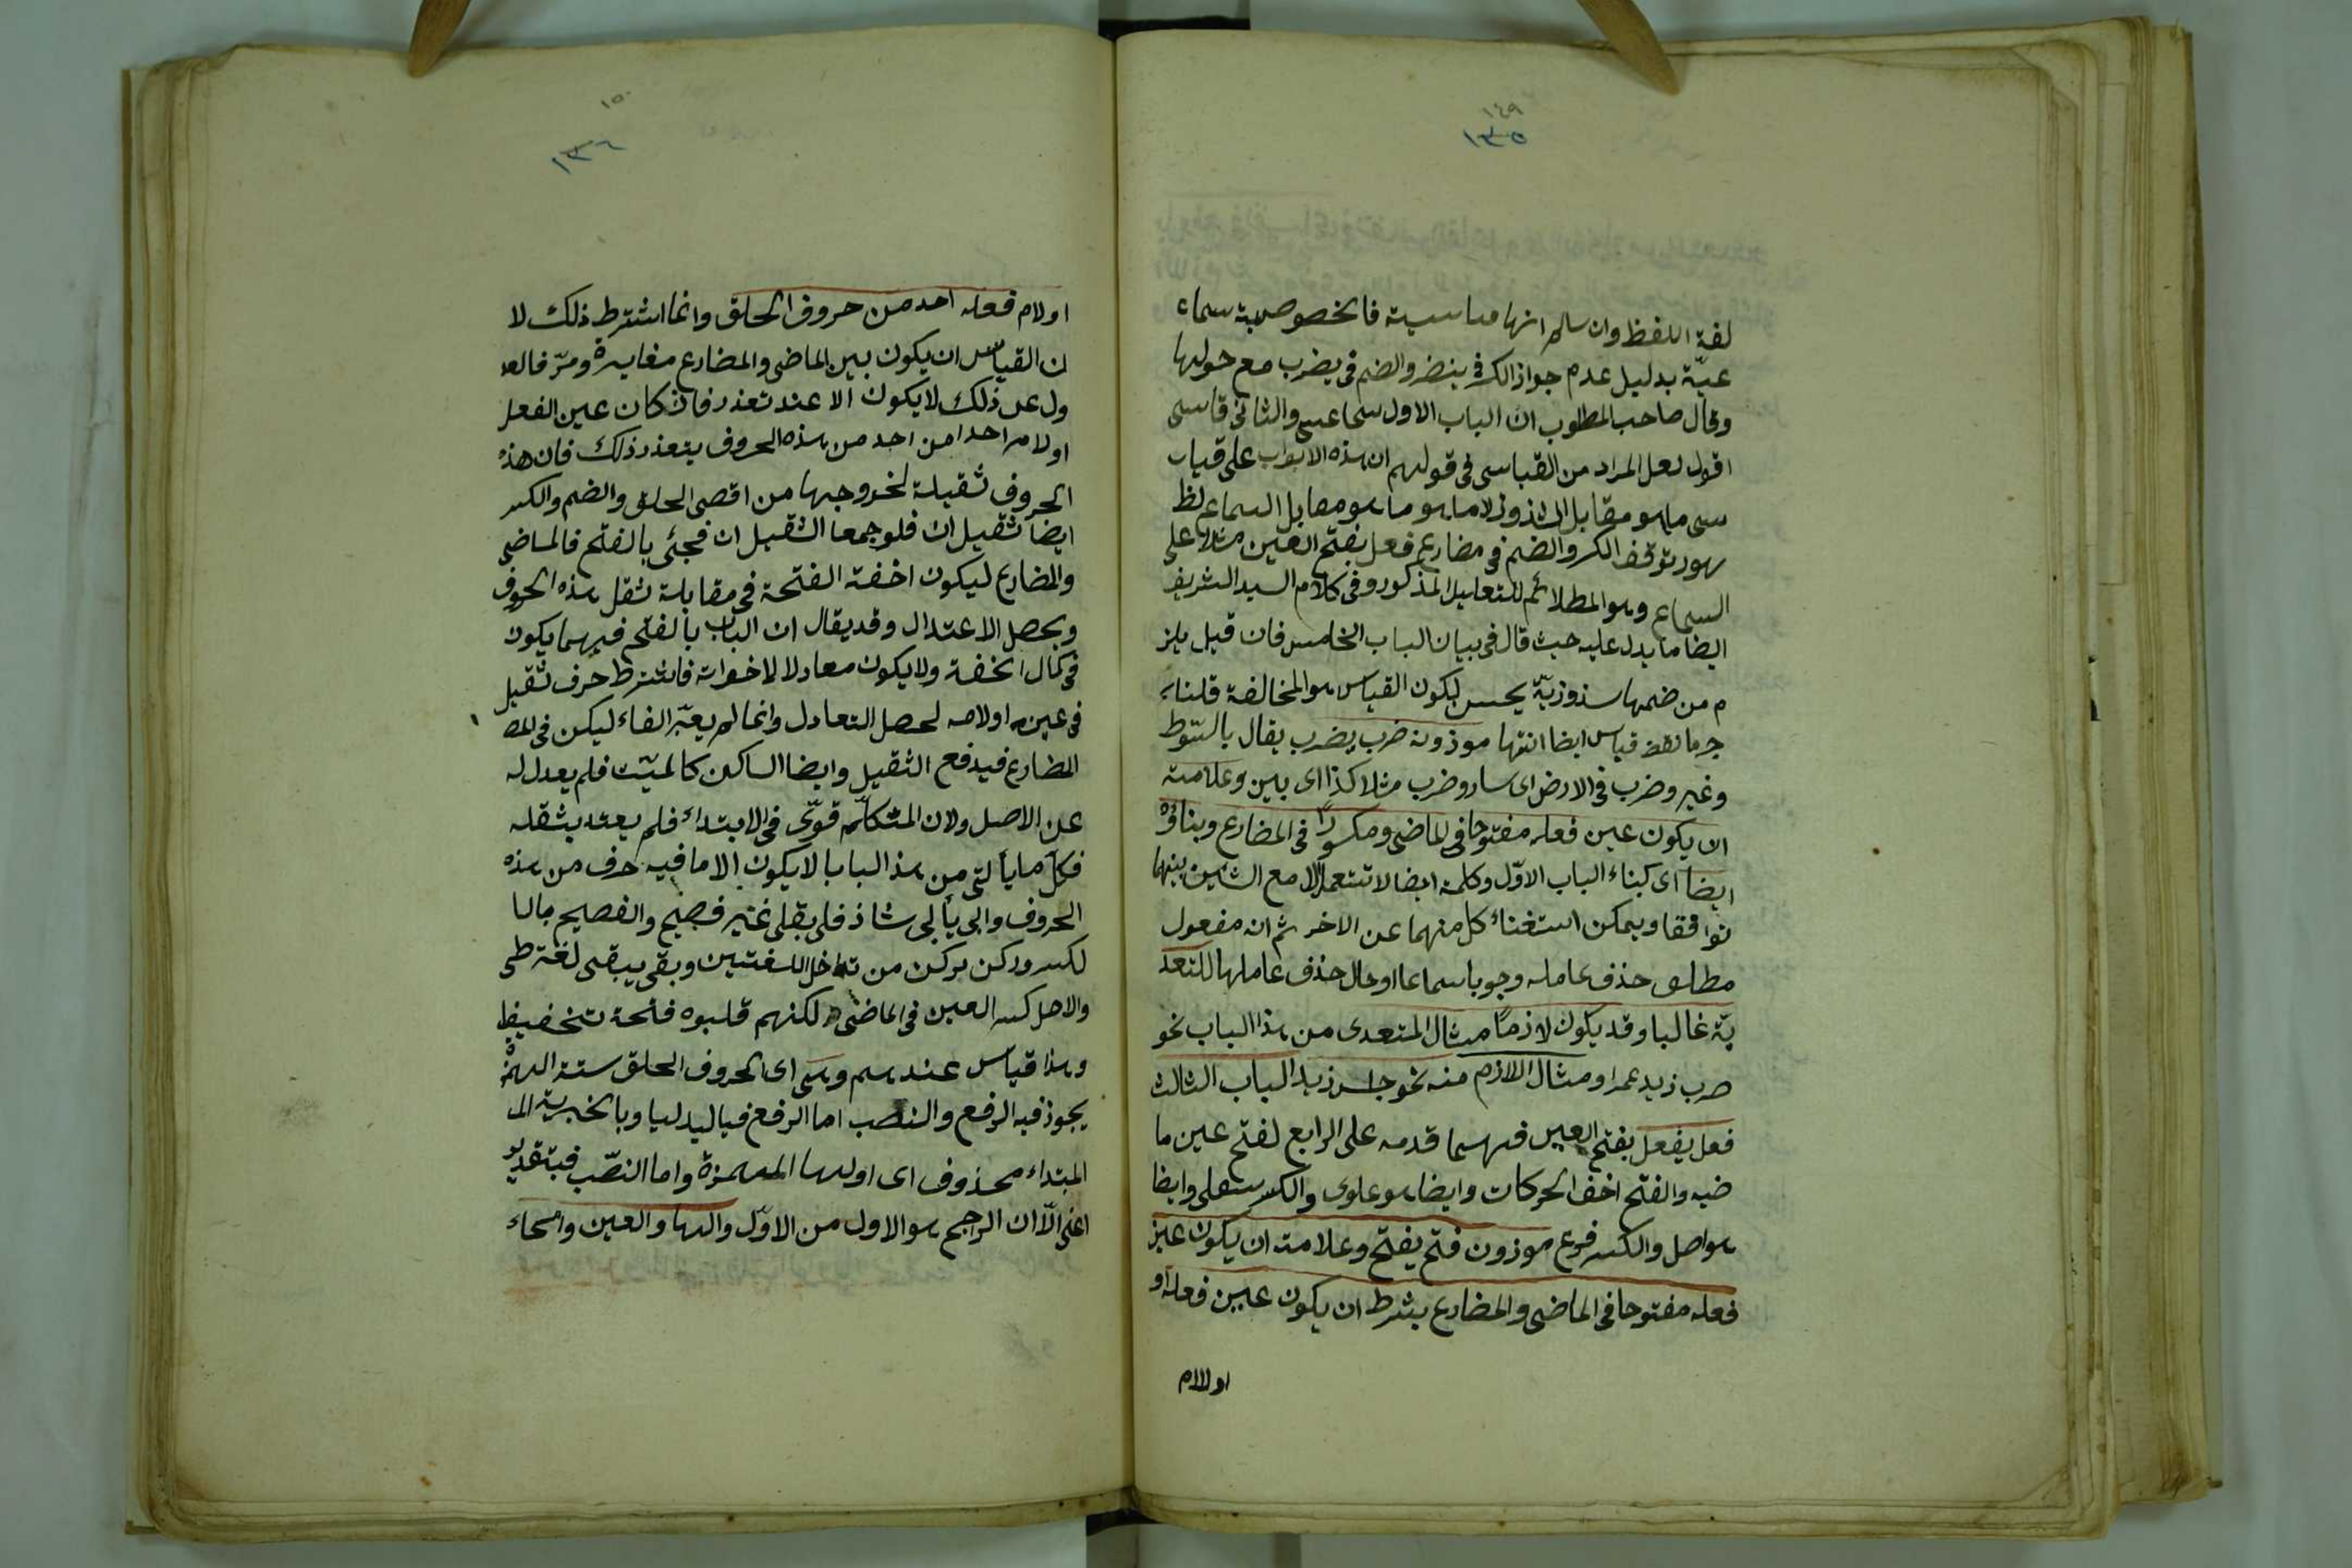 ١٤٩
١٣٥
لفة اللفظ وان سالم انها مناسبة فالخصوصية سماء
عيّة بدليل عدم جواز الكسر فى ينضر والضم فى يضرب مع حولها
وقال صاحب المطلوب ان الباب الاول سماعى والثانى قاسى
اقول لعل المراد من القياسى فى قولهم ان هذه الابواب على قيا
سى ما هو مقابل الشذوذ لا ما هو ما هو مقابل السماع لظ
هور توقف الكسر والضم فى مضارع فعل بفتح العين مثلا على
السماع وهو المطلائم للتعليل المذكور وفى كلام السيد الشريف
ايضا ما يدل عليه حيث قال فى بيان الباب الخامس فان قيل يلز
م من ضمها شذوذيّة يحسن ليكون القياس هو المخالفة قلنا
قياس ايضا انتها موذونه ضرب يضرب يقال بالسّوط
وغيره وضرب فى الارض اى سار وضرب مثلا كذا اى بين وعلامته
ان يكون عين فعله مفتوحا فى الماضى ومكسورًا فى المضارع وبناؤه
ايضا اى كبناء الباب الاوّل وكلمة ايضا لا تستعمل الا مع الشائين بينهما
توافقا ويمكن استغناء كل منهما عن الاخر ثم انه مفعول
مطلق حذف عامله وجوبا سماعا او حال حذف عاملها للتعد
يّة غالبا وقد يكون لازمًا مثال المتعدى من هذا الباب نحو
ضرب زيد عمرا ومثال اللازم منه نحو جلس زيد الباب الثالث
فعل يفعل بفتح العين فيهما قدمه على الرابع لفتح عين ما
ضيه والفتح اخف الحركات وايضا هو علوى والكسر سفلى وايضا
هو اصل والكسر فرع موزون فتح يفتح وعلامته ان يكون عين
فعله مفتوحا فى الماضى والمضارع بشرط ان يكون عين فعله او
او لام
١٥٠
١٣٦
او لام فعله احد من حروف الحلق وانما اشترط ذلك لا
ن القياس ان يكون بين الماضى والمضارع مغايرة ومرّ فالعد
ول عن ذلك لا يكون الا عند تعذر فان كان عين الفعل
او لامه احدا من احد من هذه الحروف يتعذر ذلك فان هذه
الحروف ثقيلة لخروجها من اقصى الحلق والضم والكسر
ايضا ثقيل ان فلو جمعا الثقيل ان فجئى بالفتح فالماضى
والمضارع ليكون اخفة الفتحة فى مقابلة ثقل هذه الحروف
ويحصل الاعتدال وقد يقال ان الباب بالفتح فيهما يكون
فى كمال الخفة ولا يكون معادلا لاخواته فاشترط حرف ثقيل
فى عينه او لامه لحصل التعادل وانما لم يعتبر الفاء ليكن فى المض
المضارع فيدفع الثقيل وايضا الساكن كالميّت فلم يعدل له
عن الاصل ولان المتكلّم قوّى فى الابتداء فلم يعتد بثقله
فكل ما يأتى من هذ الباب لا يكون الا ما فيه حرف من هذه
الحروف وابى يأبى شاذ قلى يقلى غير فصيح والفصيح بالا
لكسر وركن يركن من تداخل اللغتين وبقى يبقى لغة طى
والاصل كسر العين فى الماضى لكنهم قلبوه فتحة تخفيفا
وهذا قياس عندهم وسى اى الحروف الحلق ستة الهمزة
يجوز فيه الرفع والنصب اما الرفع فباليدليا وبالخبرية الى
المبتداء محذوف اى اولها الهمزة واما النصّب فبتقدير
اعنى الّا ان الراجح هو الاول من الاوّل والهاء والعين والحاء